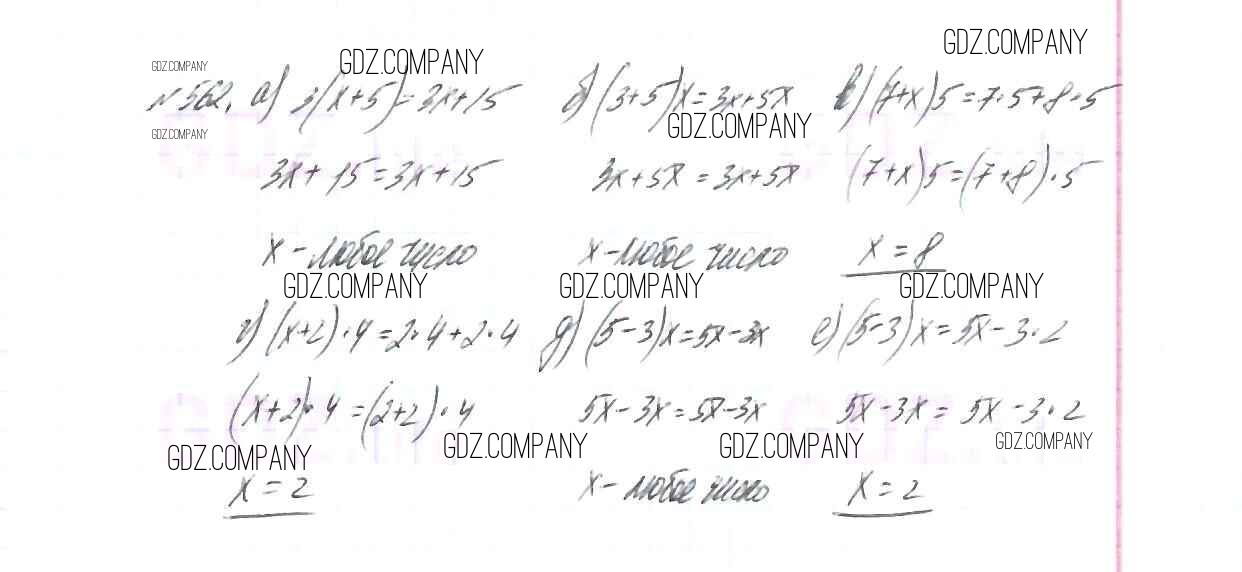 GDZ.COMPANY
GDZ.COMPANY
GDZ.COMPANY
№ 562. а) 3(x+5)=3x+15 б) (3+5)x=3x+5x в) (7+x)5=7·5+8·5
GDZ.COMPANY
GDZ.COMPANY
3x+15=3x+15 3x+5x=3x+5x (7+x)5=(7+8)·5
x-любое число x-любое число x=8
GDZ.COMPANY
GDZ.COMPANY
GDZ.COMPANY
г) (x+2)·4=2·4+2·4 д) (5-3)x=5x-3x е) (5-3)x=5x-3·2
(x+2)·4=(2+2)·4 5x-3x=5x-3x 5x-3x=5x-3·2
GDZ.COMPANY
GDZ.COMPANY
GDZ.COMPANY
GDZ.COMPANY
x=2 x-любое число x=2